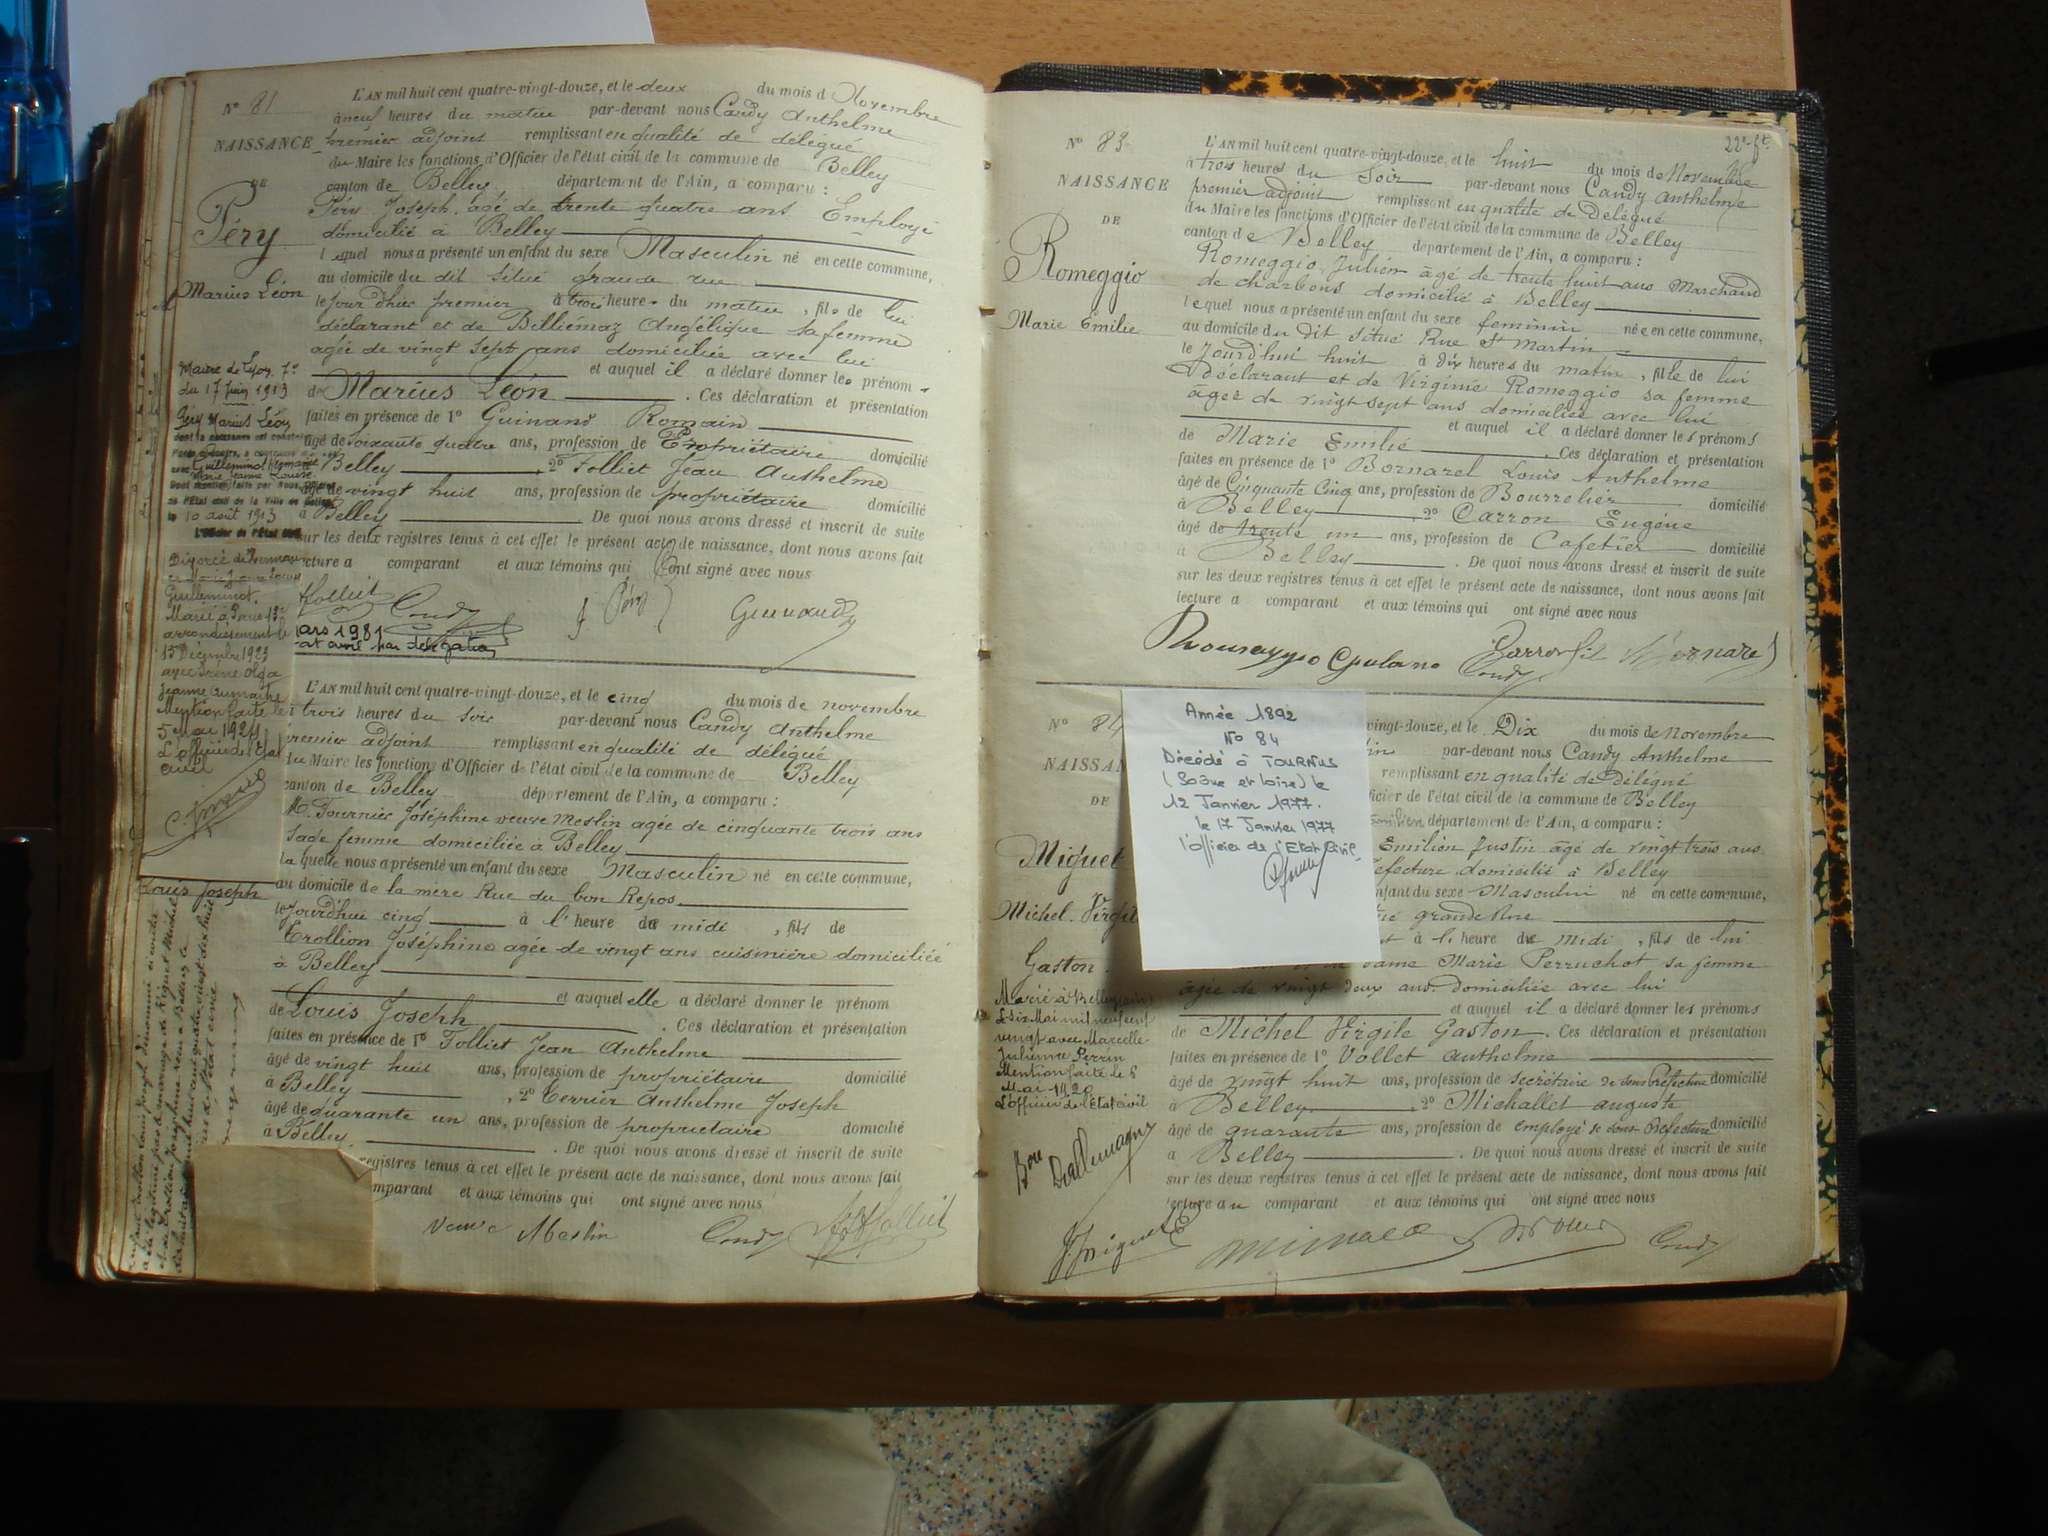 N° 81
NAISSANCE
DE
Péry
Marius Léon
L'AN mil huit cent quatre-vingt-douze, et le deux du mois d Novembre
à neuf heures du matin par-devant nous Candy Anthelme
premier adjoint remplissant en qualité de délégué
du Maire les fonctions d'Officier de l'état civil de la commune de Belley
canton de Belley département de l'Ain, a comparu :
Péry Joseph, agé de trente quatre ans Employé
domicilié à Belley
lequel nous a présenté un enfant du sexe Masculin né en cette commune,
au domicile du dit situé grande rue
le jourd'hui premier à trois heures du matin, fils de lui
déclarant et de Billiémaz Angélique sa femme
agée de vingt sept ans domiciliée avec lui
et auquel il a déclaré donner les prénoms
de Marius Léon. Ces déclaration et présentation
faites en présence de 1° Guinand Romain
âgé de soixante quatre ans, profession de Propriétaire domicilié
Belley, 2° Folliet Jean Anthelme
âgé de vingt huit ans, profession de propriétaire domicilié
à Belley. De quoi nous avons dressé et inscrit de suite
sur les deux registres tenus à cet effet le présent acte de naissance, dont nous avons fait
cture a comparant et aux témoins qui ont signé avec nous
Folliet Candy J Péry Guinand
ars 1981
at civil par délégation
du 17 Juin 1913
Péry Marius Léon
Guilleminot Germaine
Marie Jeanne Louise
de l'Etat civil de la Ville de Belley
le 10 août 1913
L'Officier de l'État civil
Divorcé de
Guilleminot.
Marié à Paris 13e
arrondissement le
15 Décembre 1923
avec Irène Olga
Jeanne
Mention faite le
5 mai 1924
L'officier de l'Etat
civil
L'AN mil huit cent quatre-vingt-douze, et le cinq du mois de novembre
trois heures du soir par-devant nous Candy Anthelme
premier adjoint remplissant en qualité de délégué
du Maire les fonctions d'Officier de l'état civil de la commune de Belley
canton de Belley département de l'Ain, a comparu :
Fournier Joséphine veuve Meslin agée de cinquante trois ans
sage femme domiciliée à Belley
la quelle nous a présenté un enfant du sexe Masculin né en cette commune,
au domicile de la mère Rue du bon Repos
le jourd'hui cinq à l'heure de midi, fils de
Trollion Joséphine agée de vingt ans cuisinière domiciliée
à Belley
et auquel elle a déclaré donner le prénom
de Louis Joseph. Ces déclaration et présentation
faites en présence de 1° Folliet Jean Anthelme
âgé de vingt huit ans, profession de propriétaire domicilié
à Belley, 2° Terrier Anthelme Joseph
âgé de quarante un ans, profession de propriétaire domicilié
à Belley. De quoi nous avons dressé et inscrit de suite
registres tenus à cet effet le présent acte de naissance, dont nous avons fait
mparant et aux témoins qui ont signé avec nous
Veuve Meslin Candy Folliet
Louis Joseph
22e ft
N° 83
NAISSANCE
DE
Romeggio
Marie Émilie
L'AN mil huit cent quatre-vingt-douze, et le huit du mois de Novembre
à trois heures du Soir par-devant nous Candy Anthelme
premier adjoint remplissant en qualité de Délégué
du Maire les fonctions d'Officier de l'état civil de la commune de Belley
canton de Belley département de l'Ain, a comparu :
Romeggio Julien âgé de trente huit ans Marchand
de charbons domicilié à Belley
lequel nous a présenté un enfant du sexe féminin née en cette commune,
au domicile du dit situé Rue St Martin
le Jourd'hui huit à dix heures du matin, fille de lui
Déclarant et de Virginie Romeggio sa femme
âgée de vingt sept ans domiciliée avec lui
et auquel il a déclaré donner les prénoms
de Marie Emilie. Ces déclaration et présentation
faites en présence de 1° Bornarel Louis Anthelme
âgé de Cinquante Cinq ans, profession de Bourrelier domicilié
à Belley, 2° Carron Eugène
âgé de trente un ans, profession de Cafetier domicilié
à Belley. De quoi nous avons dressé et inscrit de suite
sur les deux registres tenus à cet effet le présent acte de naissance, dont nous avons fait
lecture a comparant et aux témoins qui ont signé avec nous
Candy
N° 84
NAISSAN
DE
Miguet
Michel Virgile
Gaston.
Année 1892
No 84
Décédé à TOURNUS
(Saône et Loire) le
12 Janvier 1977.
le 17 Janvier 1977
l'Officier de l'Etat Civil,
vingt-douze, et le Dix du mois de Novembre
par-devant nous Candy Anthelme
remplissant en qualité de Délégué
ficier de l'état civil de la commune de Belley
département de l'Ain, a comparu :
Emilien Justin âgé de vingt trois ans
fecture domicilié à Belley
nfant du sexe Masculin né en cette commune,
grande Rue
à l'heure de Midi, fils de lui
dame Marie Perruchot sa femme
âgée de vingt deux ans domiciliée avec lui
et auquel il a déclaré donner les prénoms
de Michel Virgile Gaston. Ces déclaration et présentation
faites en présence de 1° Vollet Anthelme
âgé de vingt huit ans, profession de secrétaire de sous Préfecture domicilié
à Belley, 2° Michallet auguste
âgé de quarante ans, profession de employé de sous Préfecture domicilié
à Belley. De quoi nous avons dressé et inscrit de suite
sur les deux registres tenus à cet effet le présent acte de naissance, dont nous avons fait
lecture au comparant et aux témoins qui ont signé avec nous
Marié à Belley
le six Mai mil neuf cent
vingt avec Marcelle
Julienne Perrin
Mention faite le 8
Mai 1920
L'officier de l'État civil
Bon Dallemagne
J Miguet Candy